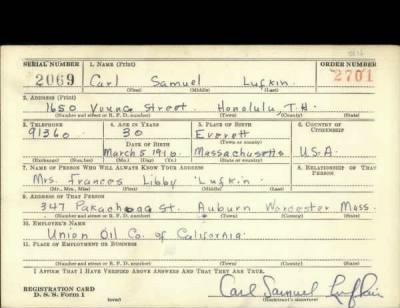 SERIAL NUMBER 1. NAME (Print) ORDER NUMBER
2069 Carl Samuel Lufkin 2701
(First) (Middle) (Last)
2. ADDRESS (Print)
1650 Young Street. Honolulu, T.H.
(Number and street or R. F. D. number) (Town) (County) (State)
3. TELEPHONE 4. AGE IN YEARS 5. PLACE OF BIRTH 6. COUNTRY OF CITIZENSHIP
91360 30 Everett
DATE OF BIRTH (Town or county)
March 5 1910 Massachusetts U.S.A.
(Exchange) (No.) (Mo.) (Day) (Yr.) (State or country)
7. NAME OF PERSON WHO WILL ALWAYS KNOW YOUR ADDRESS 8. RELATIONSHIP OF THAT PERSON
Mrs. Frances Libby Lufkin
(Mr., Mrs., Miss) (First) (Middle) (Last)
9. ADDRESS OF THAT PERSON
347 Pakachoag St. Auburn Worcester Mass.
(Number and street or R. F. D. number) (Town) (County) (State)
10. EMPLOYER'S NAME
Union Oil Co. of California
11. PLACE OF EMPLOYMENT OR BUSINESS
(Number and street or R. F. D. number) (Town) (County) (State)
I AFFIRM THAT I HAVE VERIFIED ABOVE ANSWERS AND THAT THEY ARE TRUE.
REGISTRATION CARD
D. S. S. Form 1 (over) Carl Samuel Lufkin
(Registrant's signature)